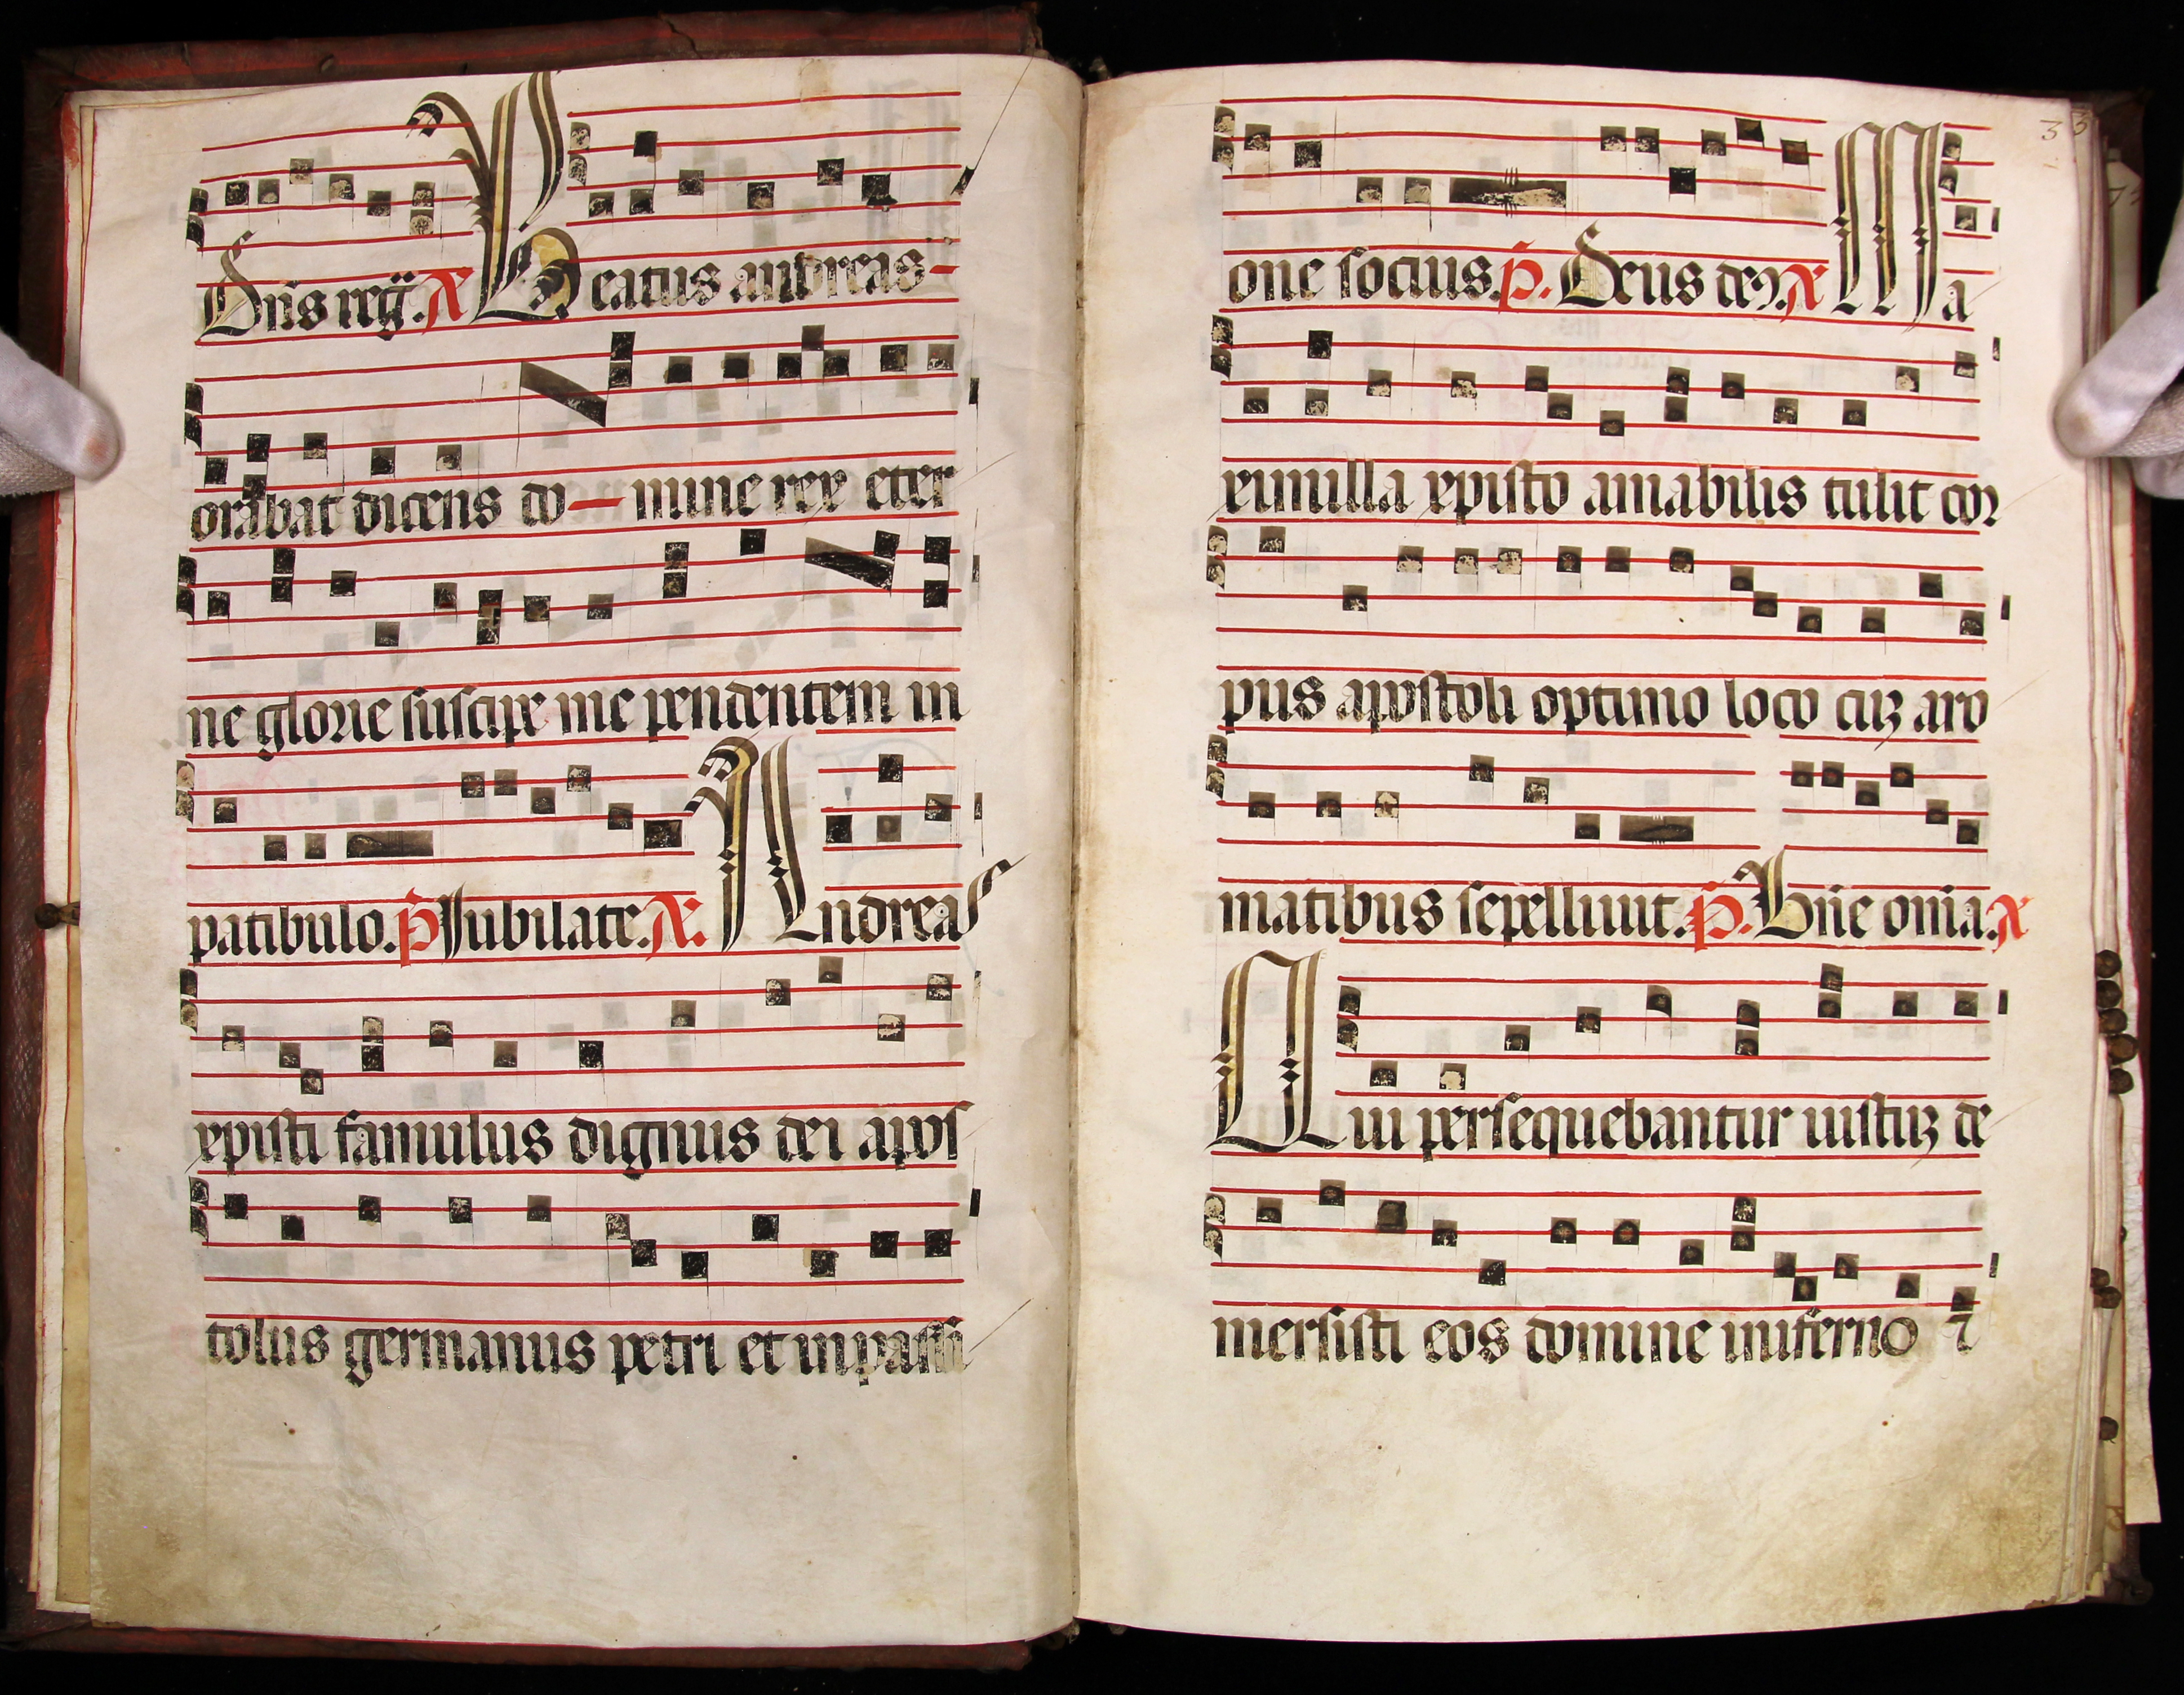 Dns reg̅. A Beatus andreas
orabat dicens do–mine rex eter
ne glorie suscipe me pendentem in
patibulo. p̅ Jubilate. A. Andreas
xpisti famulus dignus dei apos
tolus germanus petri et in passi
33
one socius. p̅. Deus deo. A Ma
ximilla xpisto amabilis tulit cor
pus apostoli optimo loco cuȝ aro
matibus sepelliuit. p̅. Dn̅e om̅a. A
Qui persequebantur iustuȝ de
mersisti eos domine inferno ⁊